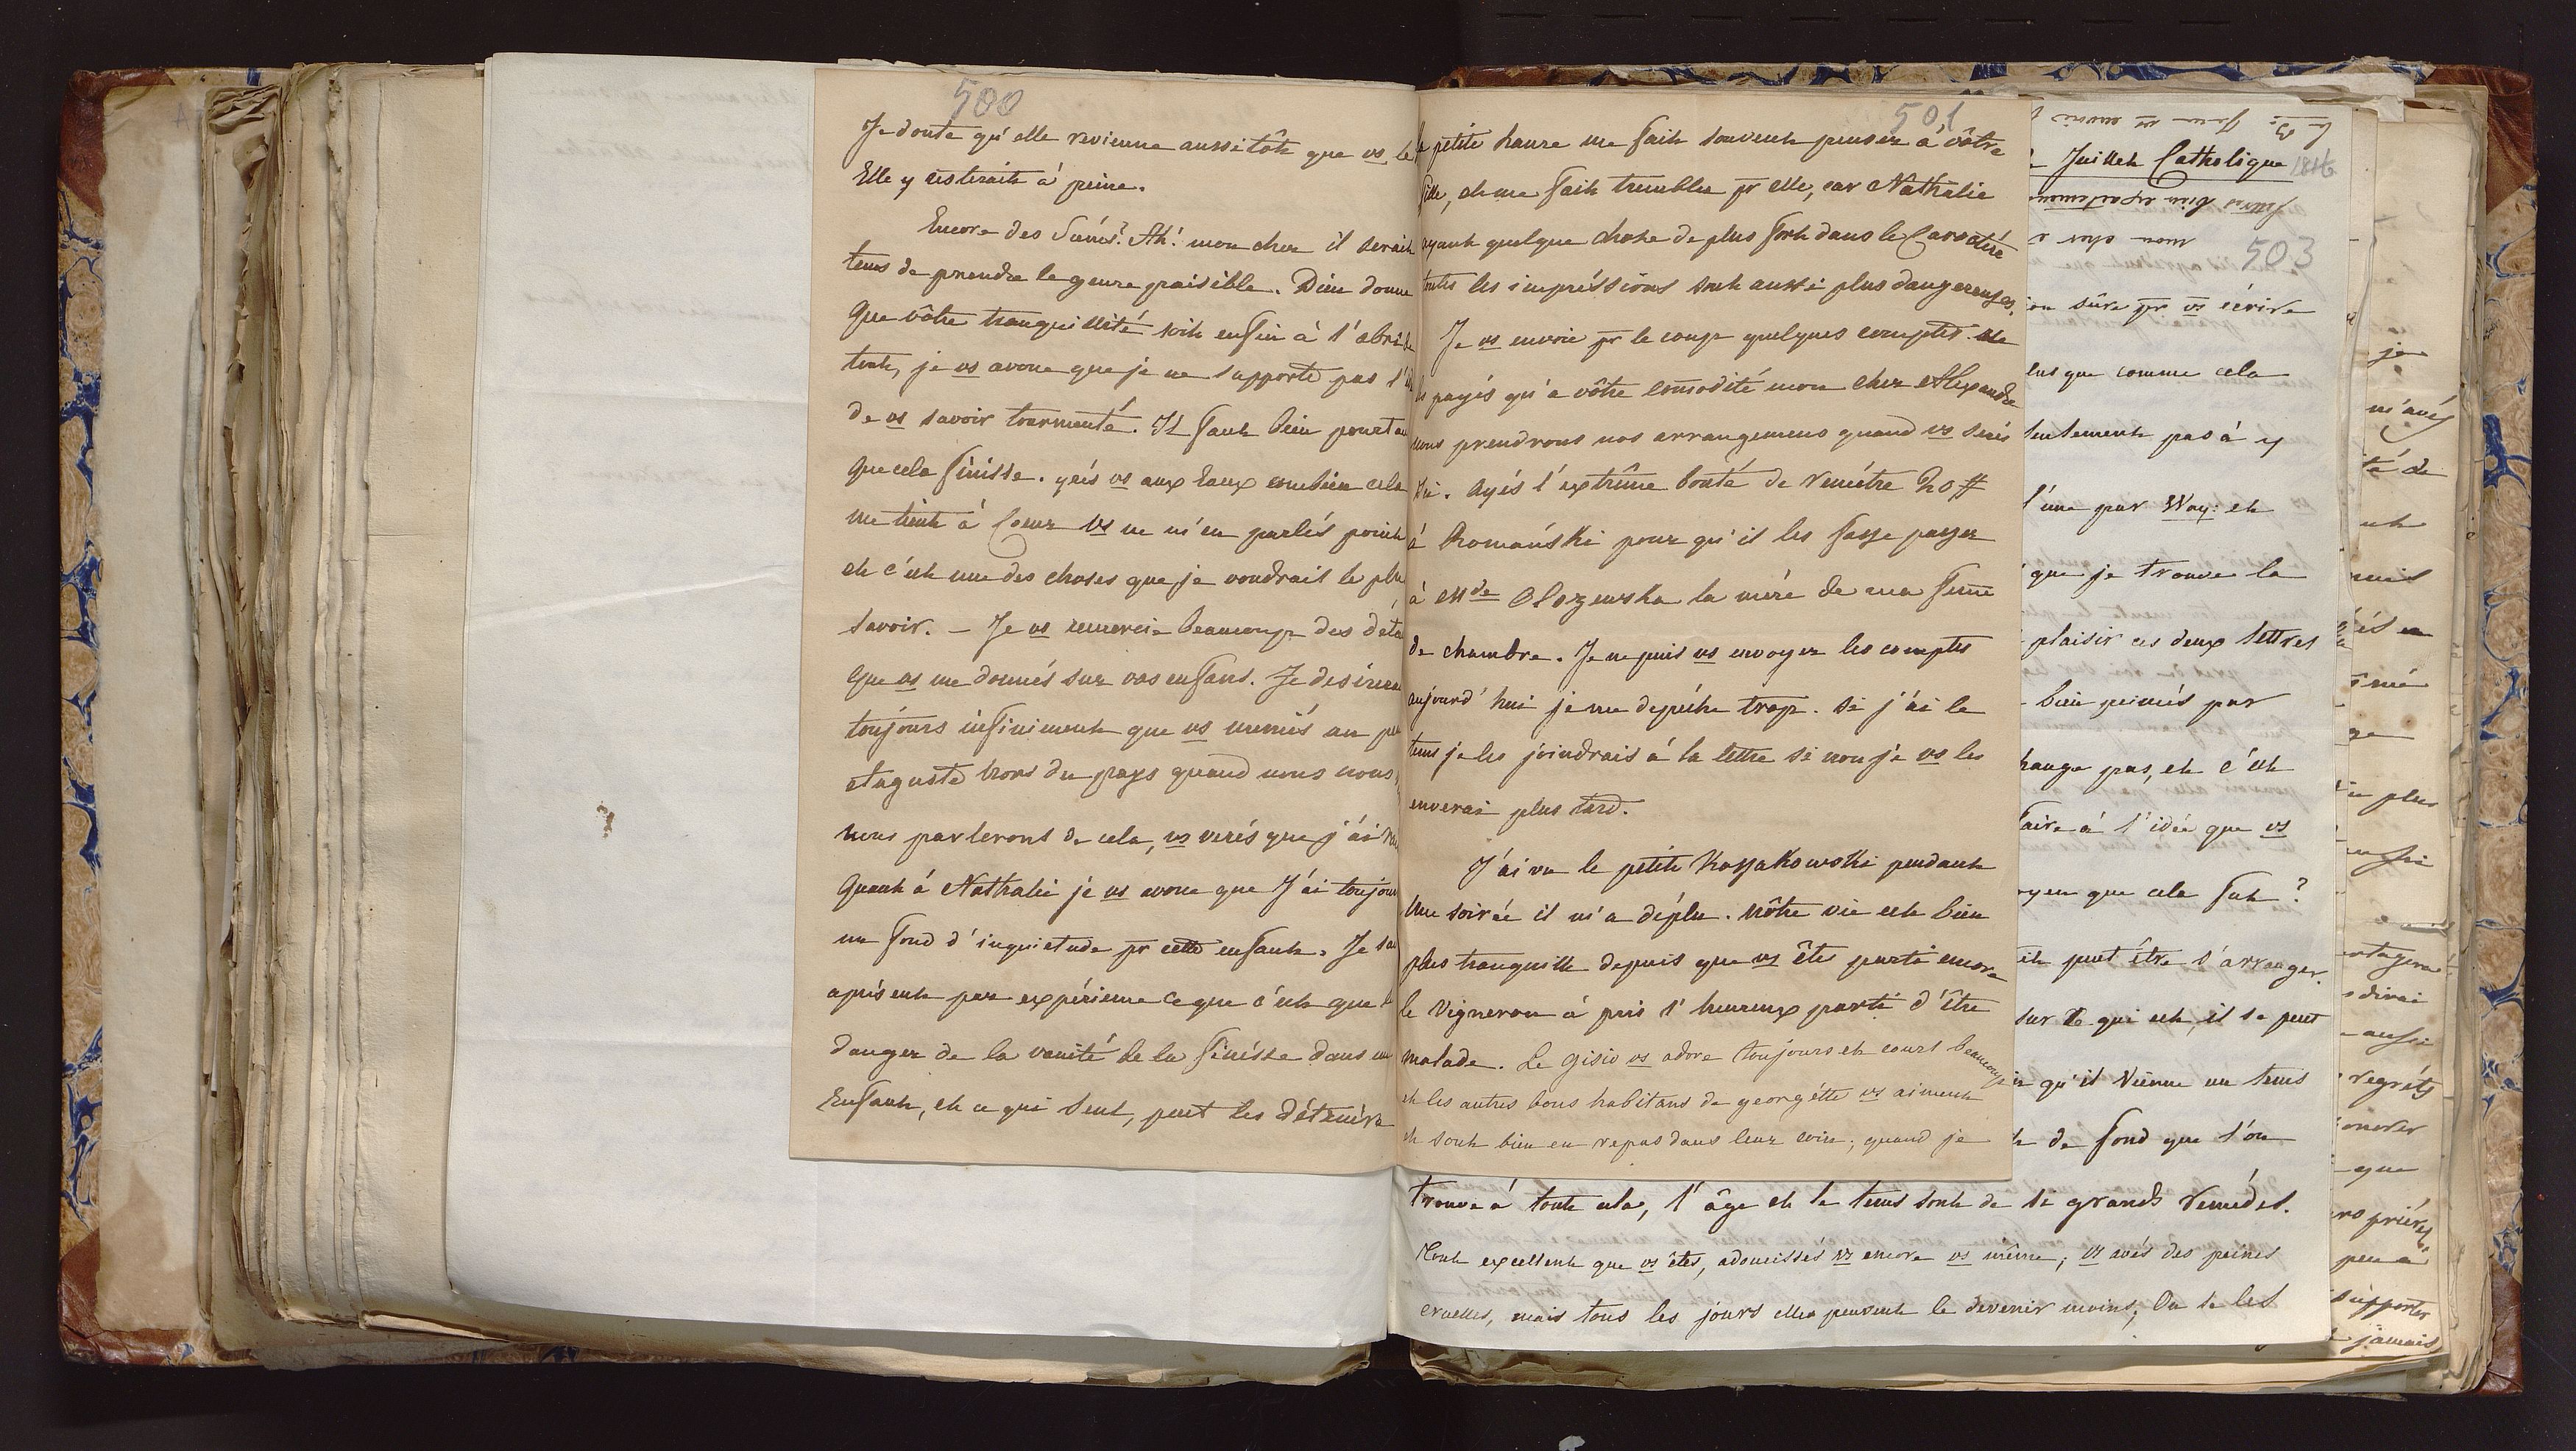 500
Je doute qu'elle revienne aussitôt que vs le
Elle y resterait à peine.
Encore des Scenés? Ah! mon cher il serait
tems de prendre le genre paisible. Dieu donne
Que vôtre tranquillité soit enfin à l'abri de
tout, je vs avoue que je ne supporte pas l'
de vs savoir tourmenté. Il faut bien pourtan
que cela finisse. vs aux Eaux combien cela
me tient à Coeur vs ne m'en parlés point
et c'est une des choses que je voudrait le plus
savoir. – Je vs remercie beaucoup des déta
que vs me donnés sur vos enfans. Je desirera
toujours infiniment que vs meniés un peu
Auguste hors du pays quand nous nous
nous parlerons de cela, vs verés que j'ai
Quant à Nathalie je vs avoue que J'ai toujour
un fond d'inquietude pr cette enfant. Je
aprésent par expérience ce que c'est que le
danger de la vanité de la finésse dans un
Enfant, et ce qui seul, peut les détruire
501
petite haure me fait souvent penser à vôtre
fille, et me fait trembler pr elle, car Nathalie
ayant quelque chose de plus fort dans le Caractére
toutes les impréssions sont aussi plus dangereuses.
Je vs envoie pr le coup quelques comptes. Ne
les payés qu'a vôtre comodité mon cher Alexandre
nous prendrons nos arrangemens quand vs serés
ici. Ayés l'extrême bonté de remétre 20 #
à Romański pour qu'il les fasse passer
à Mde Olszewska la mére de ma feme
de chambre. Je ne puis vs envoyer les comptes
aujourd'hui je me depéche trop. Si j'ai le
tems je les joindrais à la lettre si non je vs les
enverai plus tard.
J'ai vu le petite Kossakowski pendant
Une soirée il m'a déplu. Nôtre vie est bien
plus tranquille depuis que vs êtes parti encore
le Vigneron à pris l'heureux parti d'être
malade. Le Gisio vs adore toujours et court beaucoup
et les autres bons habitans de georgétte vs aiment
et sont bien en repos dans leur coin; quand je
Juillet Catholique 1816
503
sûre pr vs écrire
que comme cela
seulement pas à y
l'une par Way: et
que je trouve la
plaisir ces deux lettres
bien peinés par
hange pas, et c'est
faire à l'idée que vs
oyen que cela fut?
peut être s'arranger.
sur le qui est, il se peut
qu'il vienne un tems
de fond que l'on
trouve à tout cela, l'âge et le tems sont de si grands remédes.
Tout excellent que vs êtes, adoucissés vs encore vs même; vs avés des peines
cruelles, mais tous les jours elles peuvent le devenir moins; On se les
je
m'avés
té de
plus
dirai
aussi
regréts
que
priéres
peu à
supporter
jamais